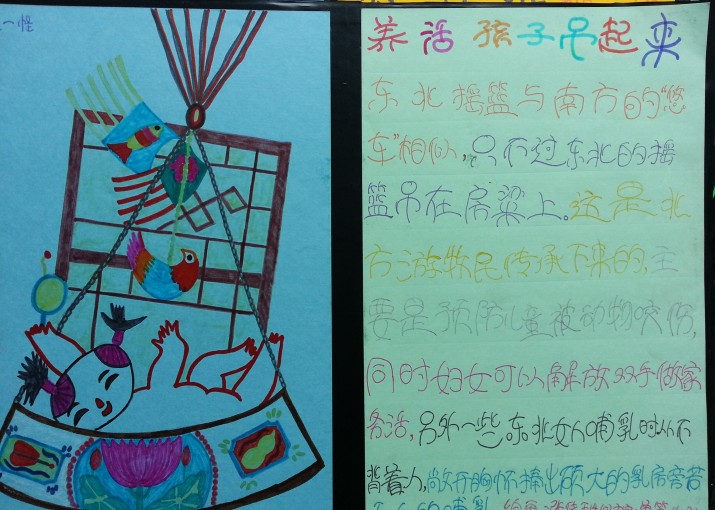 一怪
养活孩子吊起来
东北摇篮与南方的“悠
车”相似，只不过东北的摇
篮吊在房梁上。这是北
方游牧民传承下来的，主
要是预防儿童被动物咬伤，
同时妇女可以解放双手做家
务活，另外一些东北女人哺乳时从不
背着人，敞开胸怀捧出硕大的乳房旁若
无人的哺乳
绘画